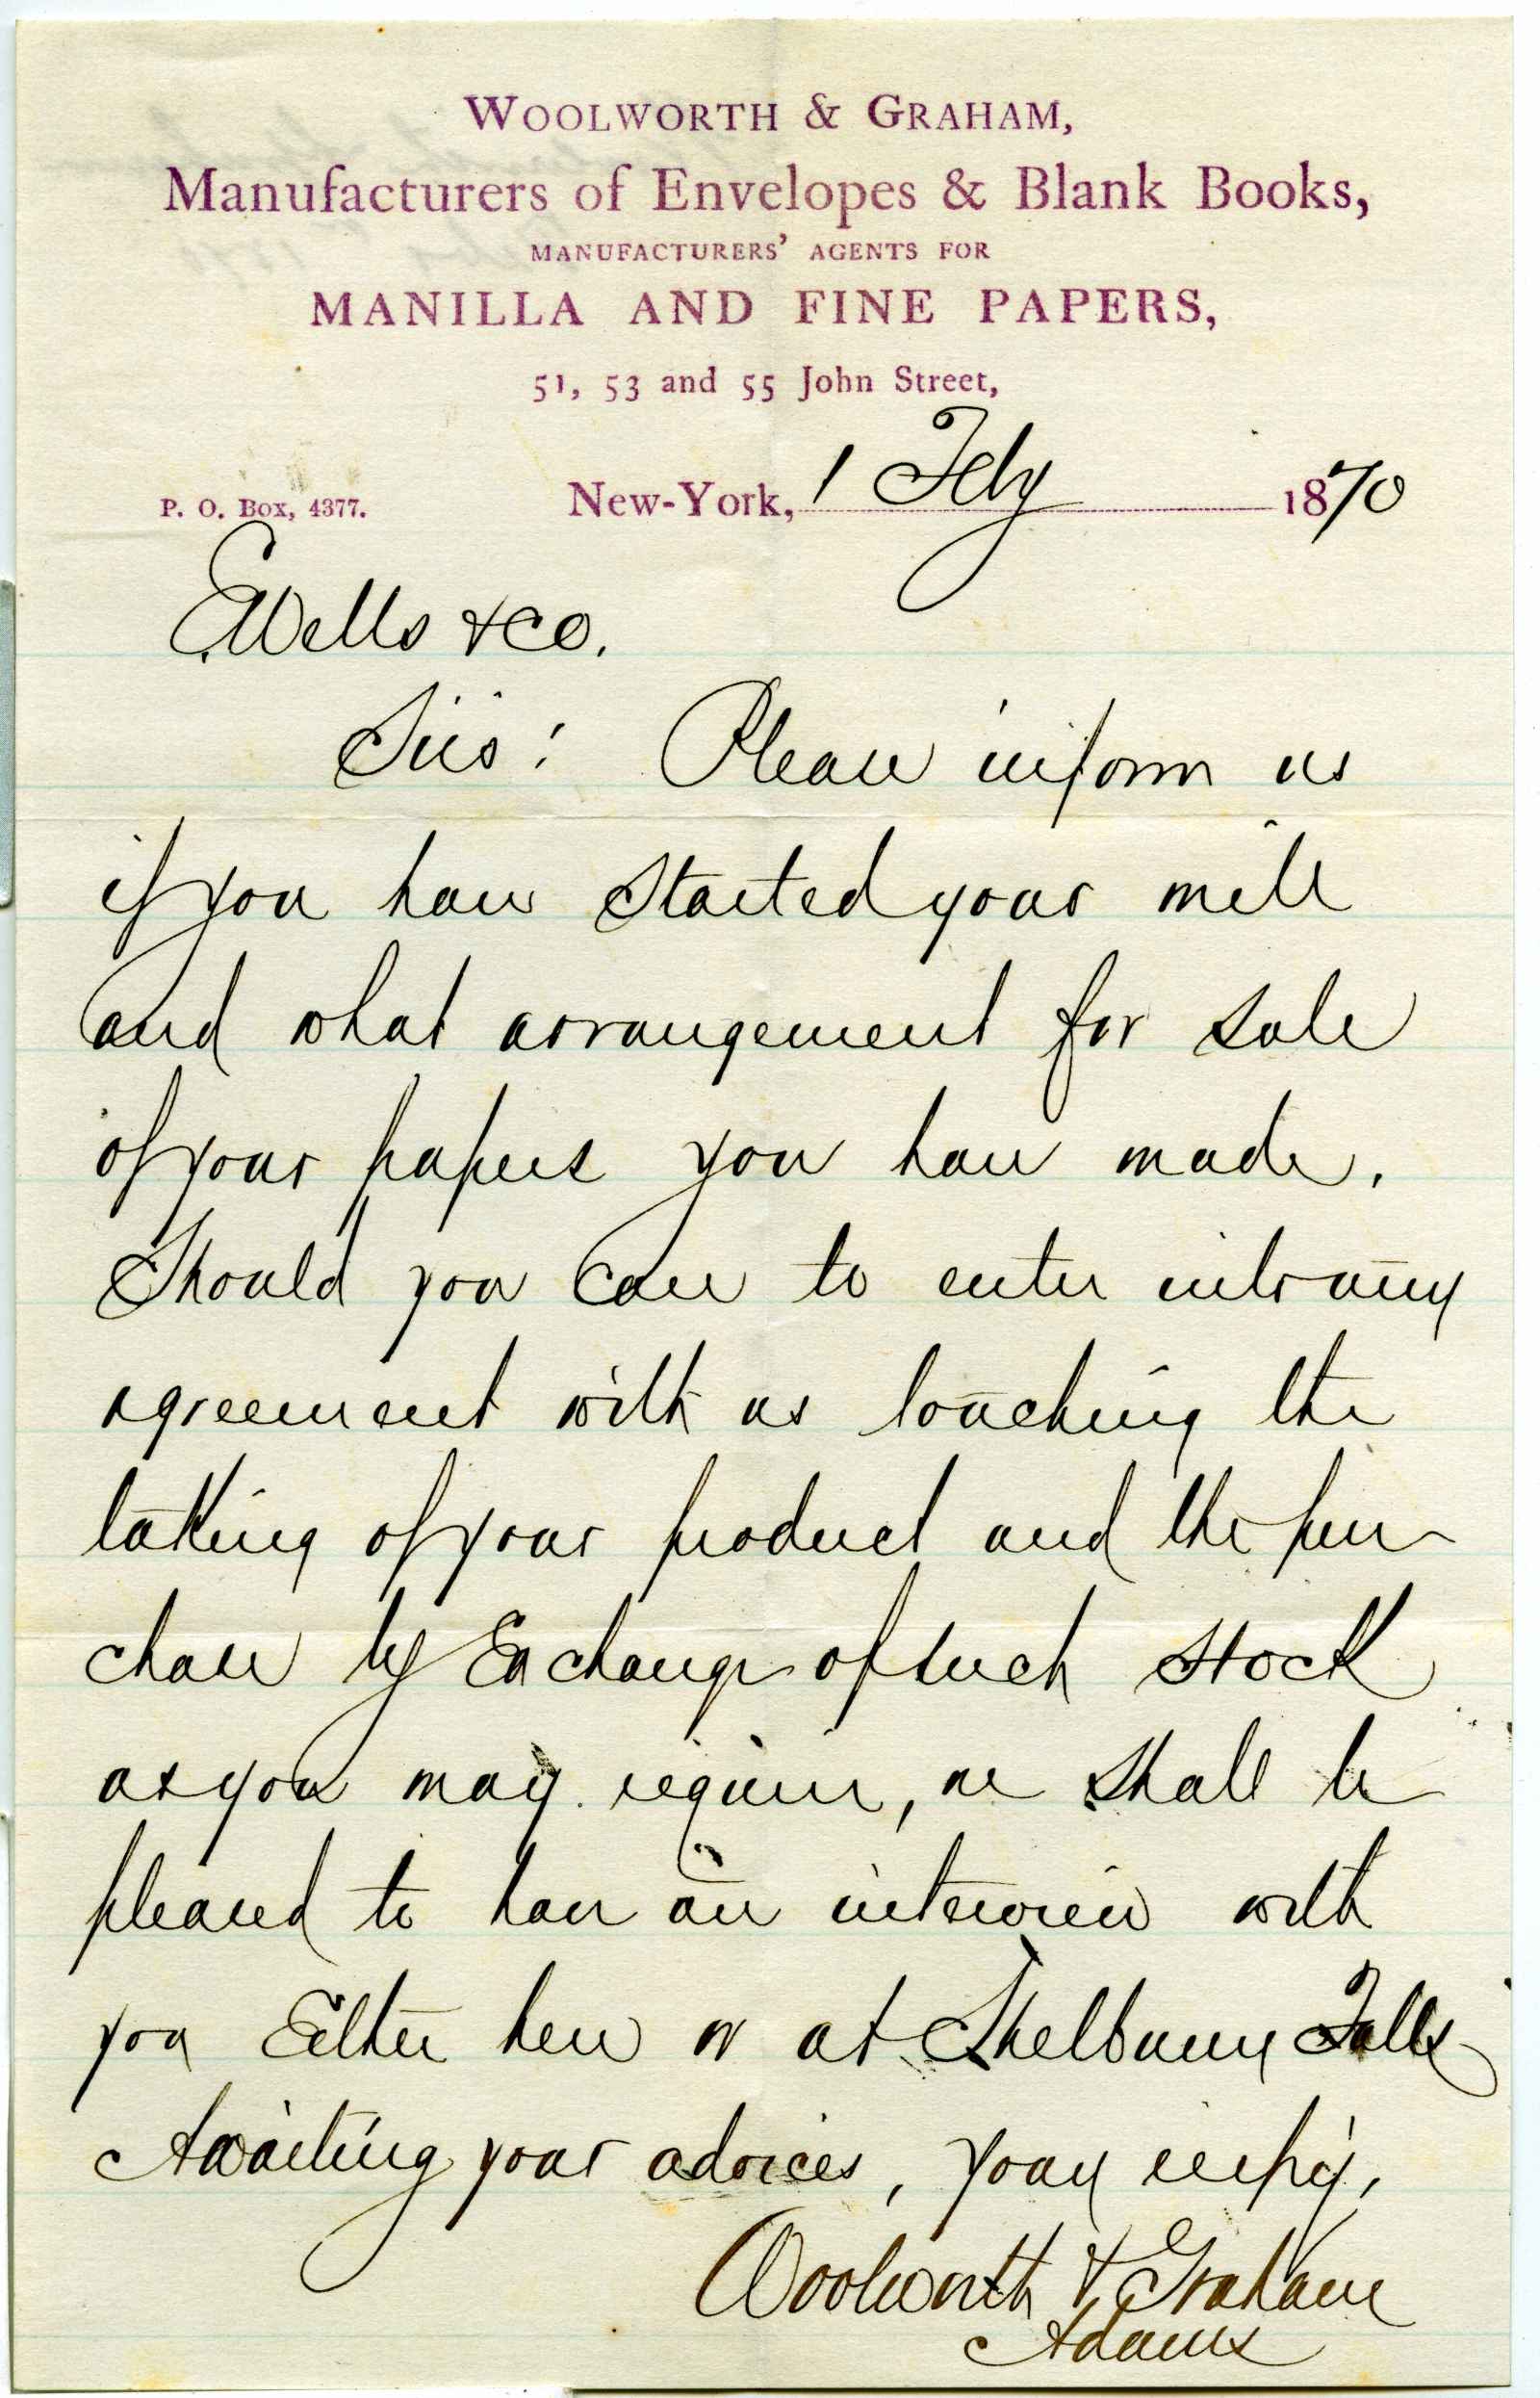 WOOLWORTH & GRAHAM,
Manufacturers of Envelopes & Blank Books,
MANUFACTURERS' AGENTS FOR
MANILLA AND FINE PAPERS,
51, 53 and 55 John Street,
P. O. Box, 4377. New-York, 1 Feby 1870
E. Wells & Co.
Sirs: Please inform us
if you have started your mill
and what arrangement for sale
of your papers you have made.
Should you care to enter into any
agreement with us touching the
taking of your product and the pur-
chase by Exchange of such stock
as you may require, we shall be
pleased to have an interview with
you Either here or at Shelburne Falls
Awaiting your advices, yours respy,
Woolworth & Graham
Adams